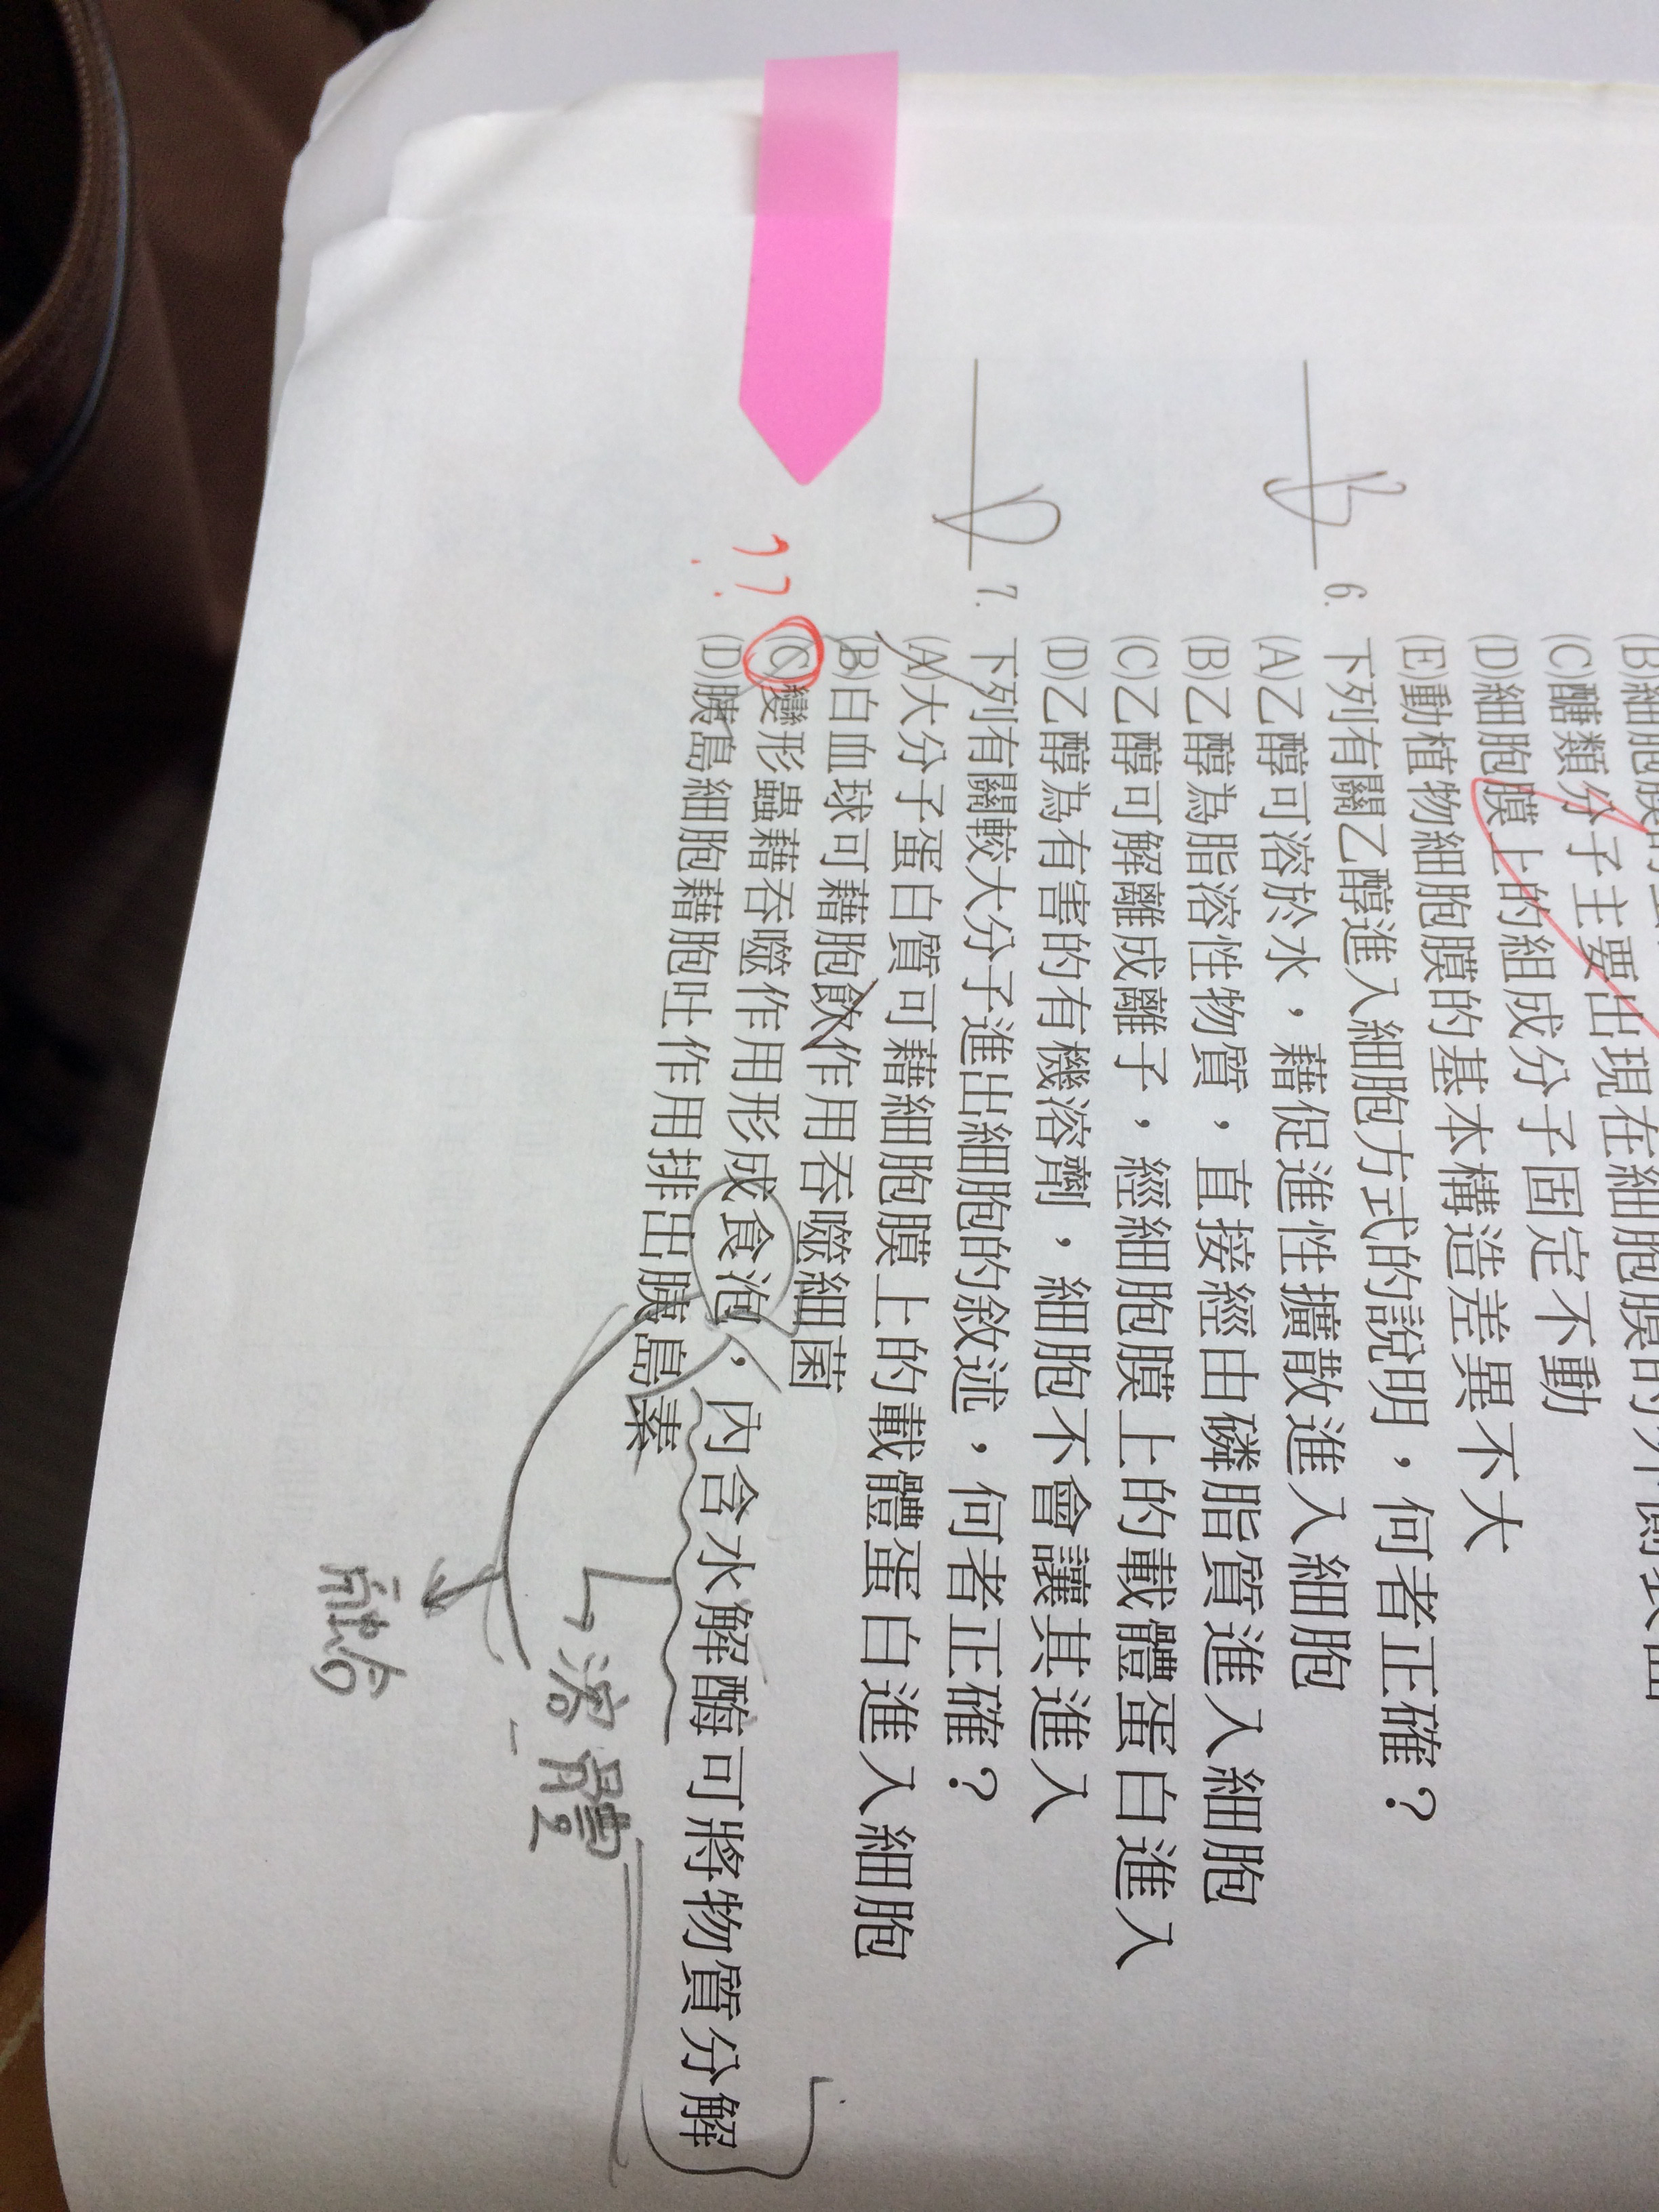 (C)醣類分子主要出現在細胞膜的外側表面
(D)細胞膜上的組成分子固定不動
(E)動植物細胞膜的基本構造差異不大
B 6. 下列有關乙醇進入細胞方式的說明，何者正確？
(A)乙醇可溶於水，藉促進性擴散進入細胞
(B)乙醇為脂溶性物質，直接經由磷脂質進入細胞
(C)乙醇可解離成離子，經細胞膜上的載體蛋白進入
(D)乙醇為有害的有機溶劑，細胞不會讓其進入
D 7. 下列有關較大分子進出細胞的敘述，何者正確？
(A)大分子蛋白質可藉細胞膜上的載體蛋白進入細胞
(B)白血球可藉胞飲作用吞噬細菌
?? (C)變形蟲藉吞噬作用形成食泡，內含水解酶可將物質分解
(D)胰島細胞藉胞吐作用排出胰島素
溶體
融合